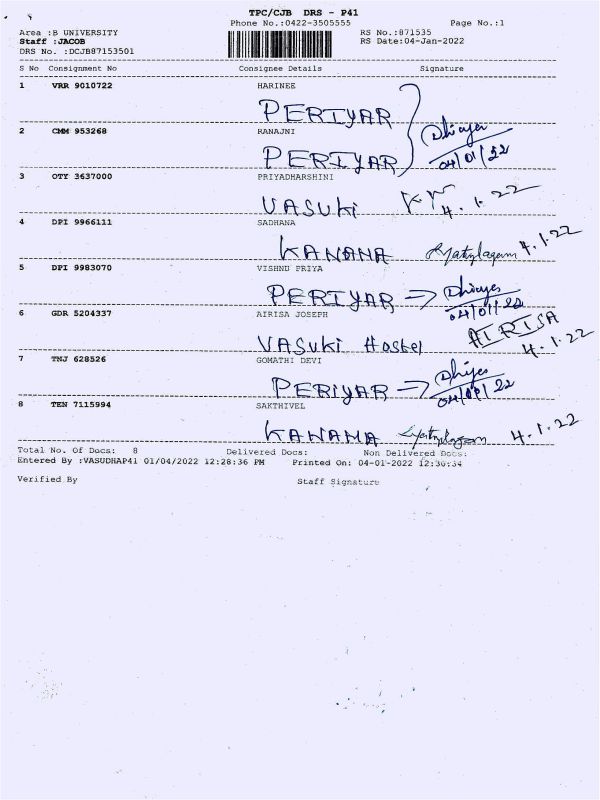 TPC/CJB DRS - P41
Phone No.:0422-3505555 Page No.:1
Area :B UNIVERSITY RS No.:871535
Staff :JACOB RS Date:04-Jan-2022
DRS No. :DCJB87153501
S No Consignment No Consignee Details Signature
1 VRR 9010722 HARINEE
PERIYAR
2 CMM 953268 RANAJNI
PERIYAR 04/01/22
3 OTY 3637000 PRIYADHARSHINI
VASUKI 4.1.22
4 DPI 9966111 SADHANA
KANAMA 4.1.22
5 DPI 9983070 VISHNU PRIYA
PERIYAR → 04/01/22
6 GDR 5204337 AIRISA JOSEPH AIRISA
VASUKI Hostel 4.1.22
7 TNJ 628526 GOMATHI DEVI
PERIYAR → 04/01/22
8 TEN 7115994 SAKTHIVEL
KANAMA 4.1.22
Total No. Of Docs: 8 Delivered Docs: Non Delivered Docs:
Entered By :VASUDHAP41 01/04/2022 12:28:36 PM Printed On: 04-01-2022 12:30:34
Verified By Staff Signature